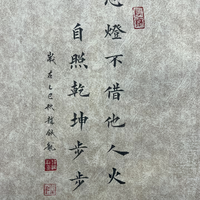 心燈不借他人火
自照乾坤步步
歲在乙巳秋